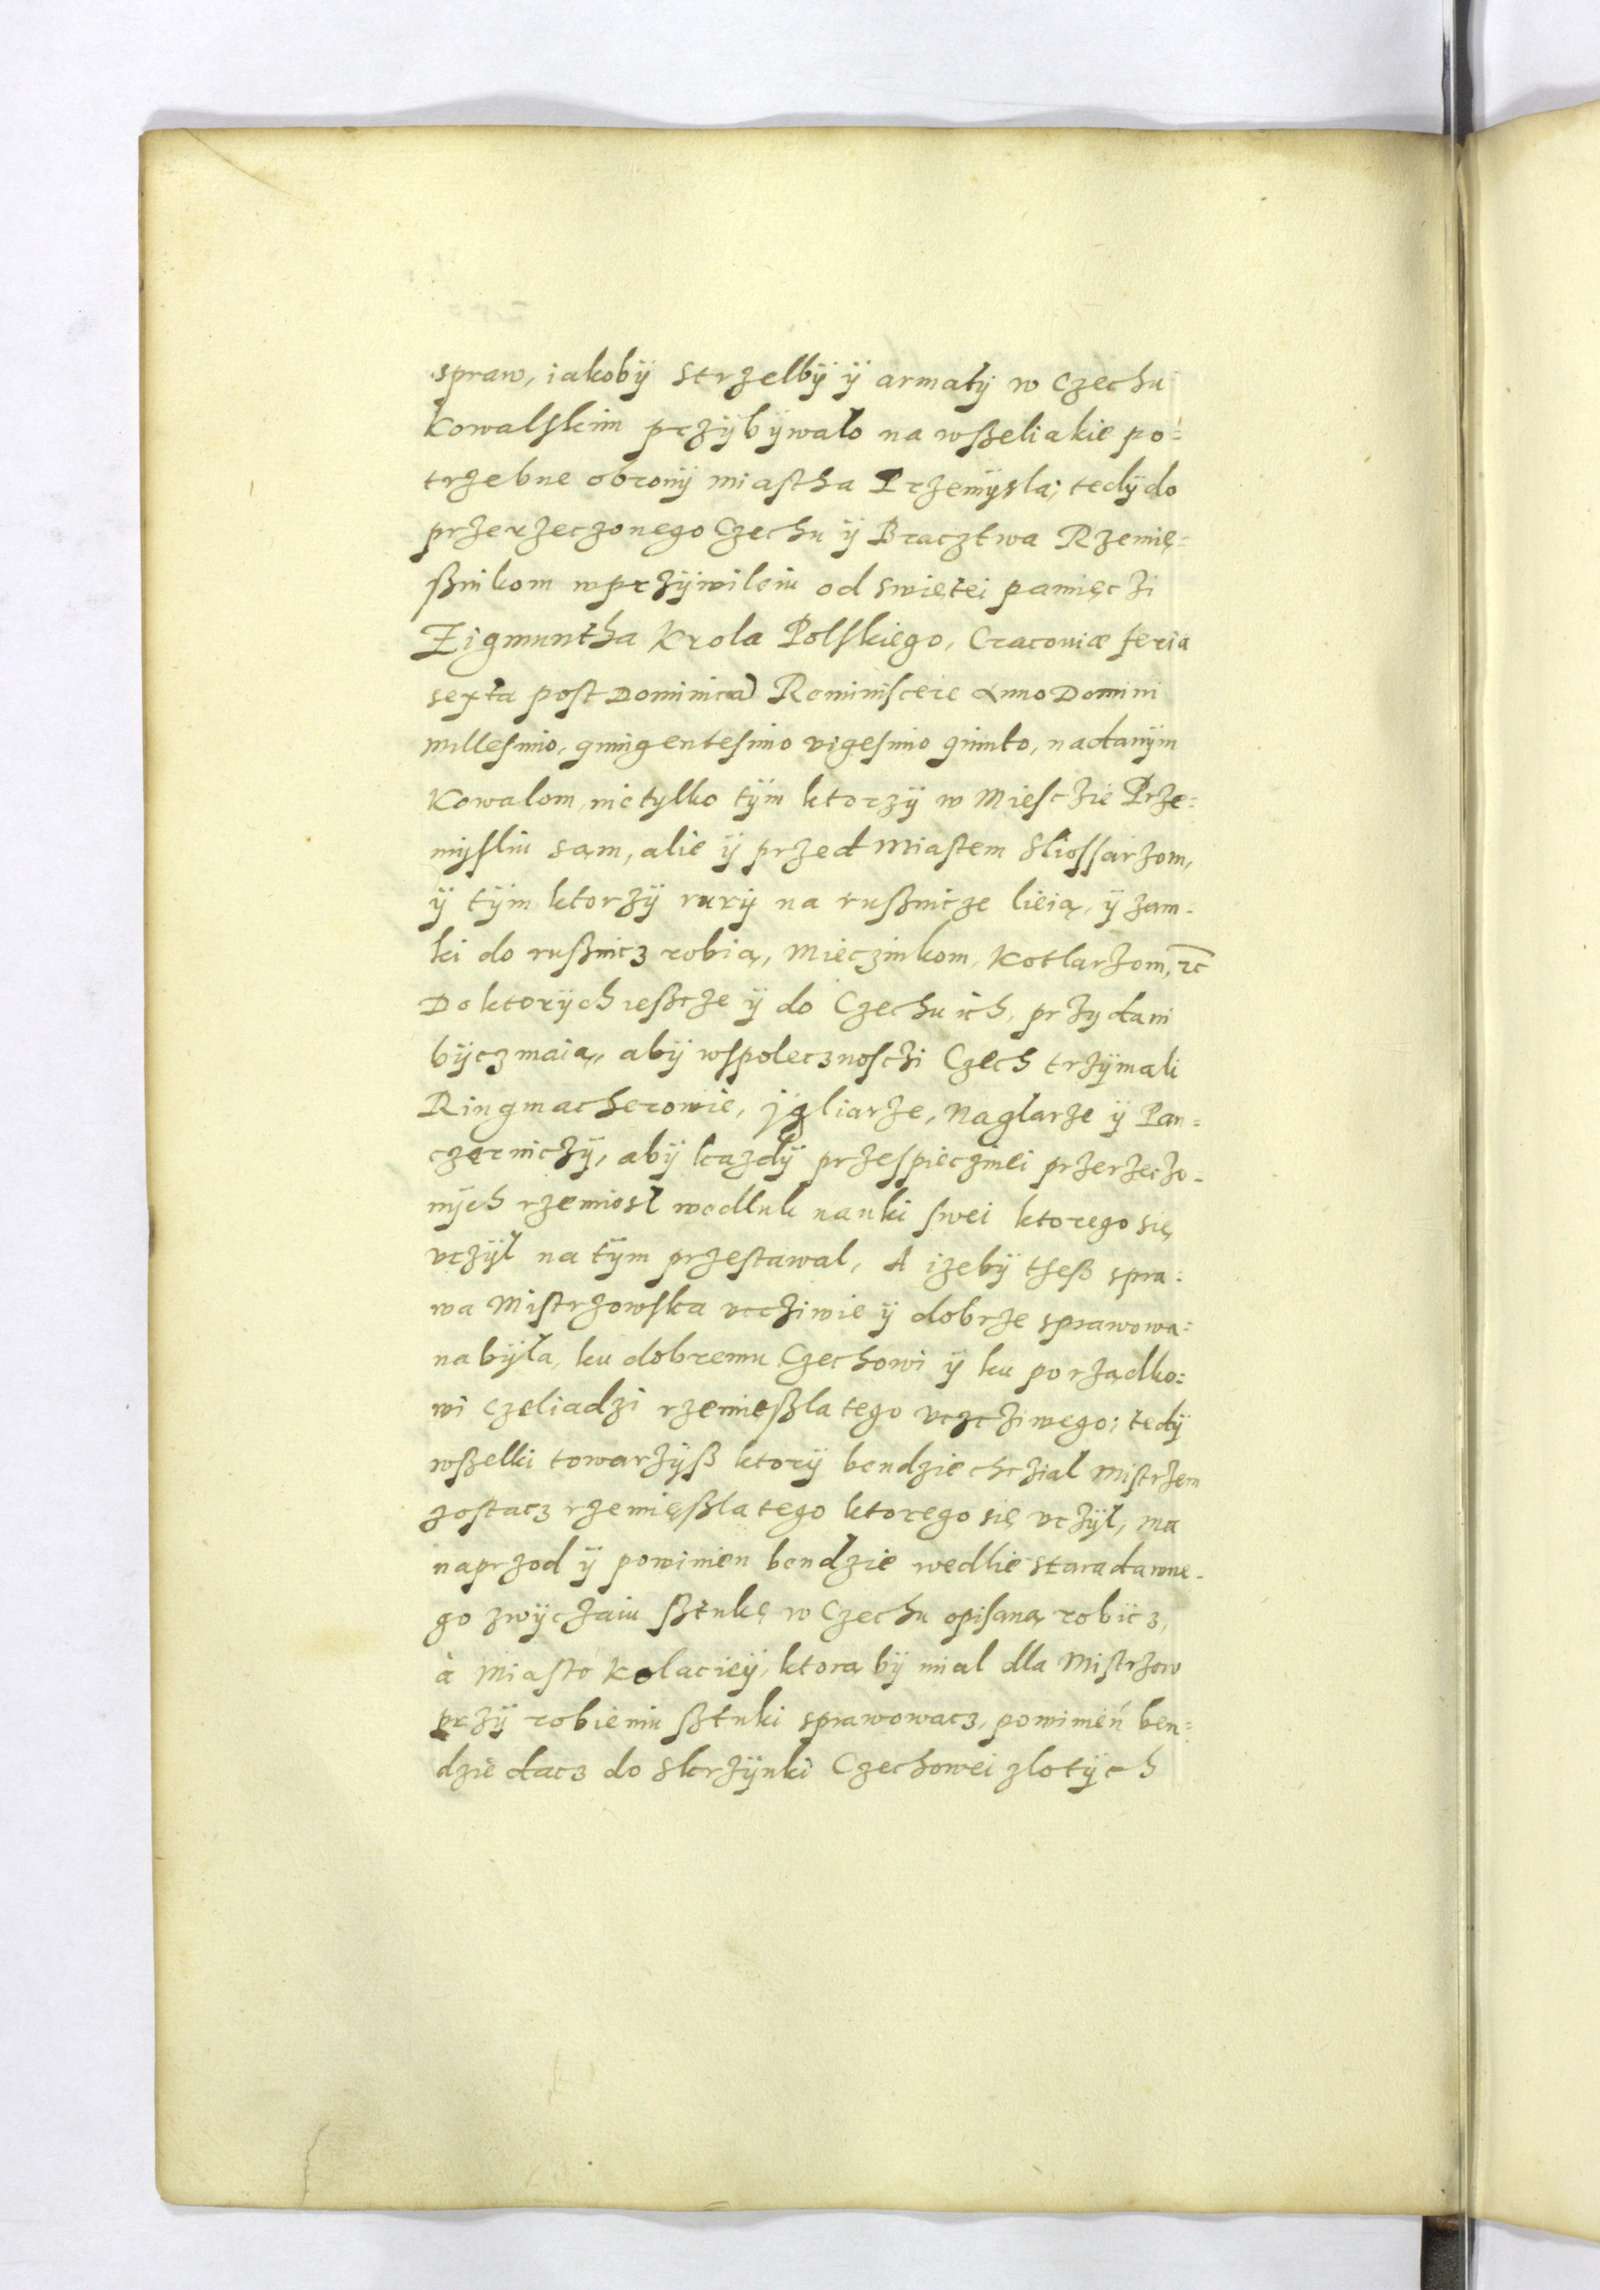 spraw, iakobÿ strzelbÿ ÿ armatÿ w Czechu
kowalskim przÿbÿwało na wßeliakie po=
trzebne obronÿ miastha Przemÿsla; tedÿ do
przerzeczonego Czechu ÿ Bracztwa Rzemię=
ßnikom w przÿwileiu od swiętei pamięczi
Zigmuntha Krola Polskiego, Cracoviæ feria
sexta post Dominicā Reminiscere Anno Domini
millesimo, quingentesimo vigesimo quinto, nadanÿm
Kowalom, nie tylko tÿm ktorzÿ w Miesczie Prze=
mÿsliu sąm, alie ÿ przed Miastem Sliossarzom,
ÿ tÿm ktorzÿ rurÿ na rußnicze lieią, ÿ zam-
ki do rußnicz robią, Mieczinkom, Kotlarzom, ꝛc
Do ktorÿch ießcze ÿ do Czechu ich, przydani
bÿcz maią, abÿ wspolecznosczi Czech trzÿmali
Ringmacherowie, jgliarze, Naglarze ÿ Pan=
czerniczÿ, abÿ kazdÿ przespiecznei przerzeczo-
nÿch rzemiosł wedluk nauki swei ktorego się
vczÿł na tÿm przestawal, A izebÿ theß spra=
wa Mistrzowska vcćziwie ÿ dobrze sprawowa=
na bÿła, ku dobremu Czechowi ÿ ku porządko=
wi czeliadzi rzemięßla tego vczcziwego; tedÿ
wßelki towarzÿß ktorÿ bendzie chcział Mistrzem
zostacz rzemięßla tego ktorego się vczÿł, ma
naprzod ÿ powinien bendzie wedlie staradawne-
go zwÿczaiu ßtukę w Czechu opisaną robicz,
à miasto kolacieÿ, ktorą bÿ mial dla Mistrzow
przÿ robieniu sztuki sprawowacz, powinień ben=
dzie dacz do skrzÿnki Czechowei zlotÿch